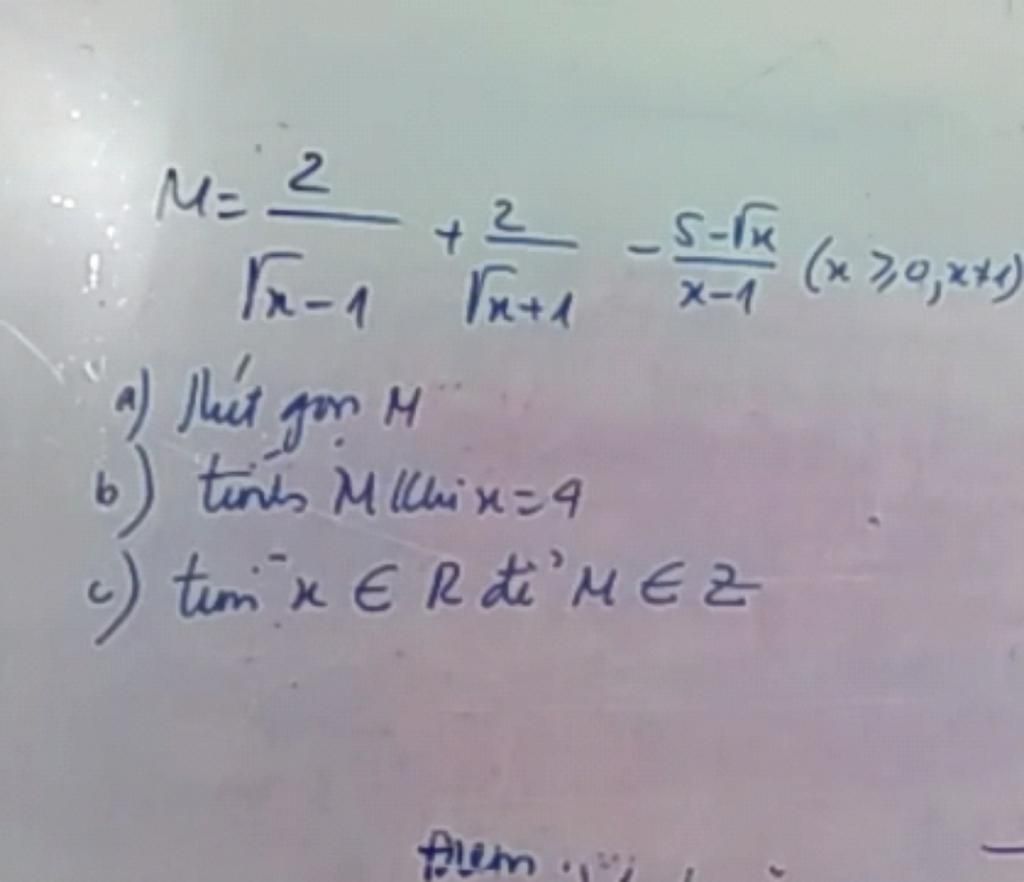 M = 2/(√x-1) + 2/(√x+1) - (5-√x)/(x-1) (x ≥ 0, x ≠ 1)
a) Rút gọn M
b) tính M khi x = 9
c) tìm x ∈ R để M ∈ Z